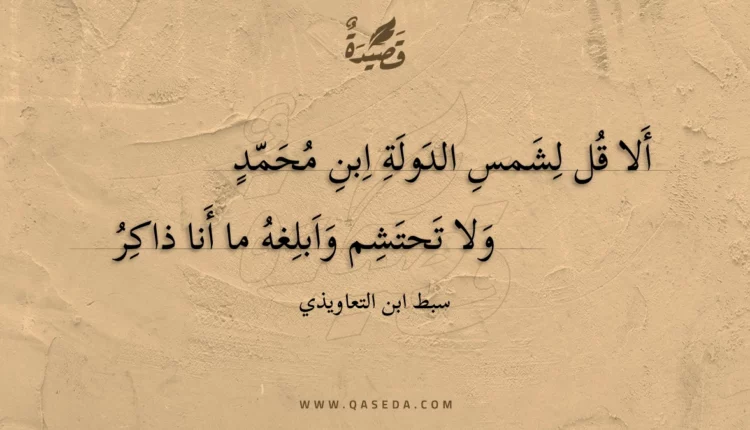 قَصِيْدَةٌ
أَلا قُل لِشَمسِ الدَولَةِ اِبنِ مُحَمّدٍ
وَلا تَحتَشِم وَاَبلِغهُ ما أَنا ذاكِرُ
سبط ابن التعاويذي
WWW.QASEDA.COM